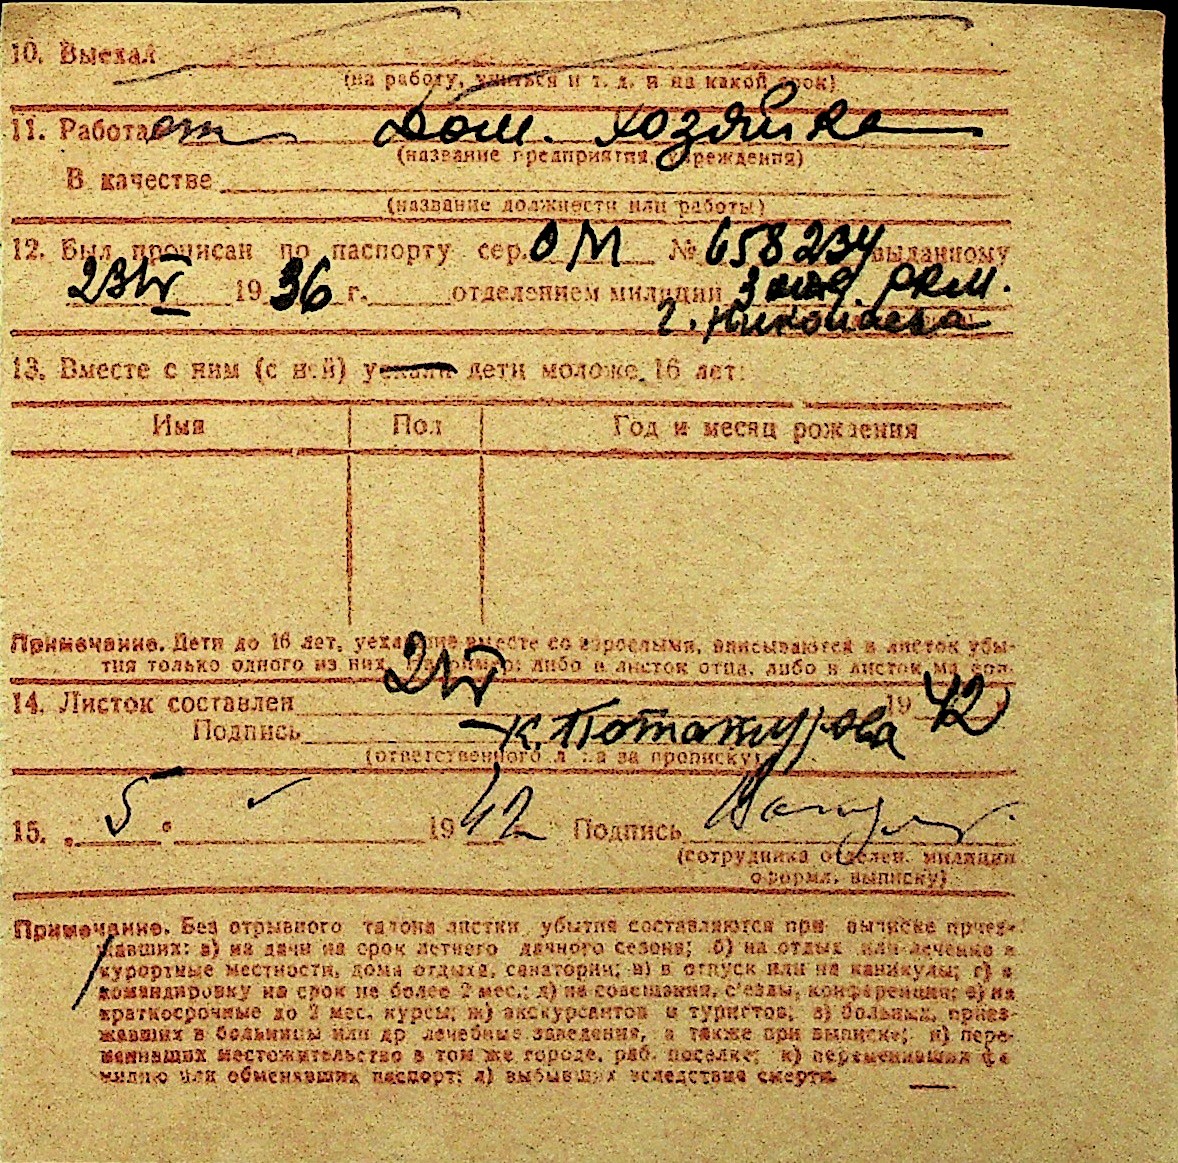 10. Выехал
(на работу, учиться и т. д. и на какой срок)
11. Работает Дом. хозяйка
(название предприятия, учреждения)
В качестве
(название должности или работы)
12. Был прописан по паспорту сер. ОМ № 658234 выданному
23/V 1936 г. отделением милиции 3 отд. РКМ.
г. Николаева
13. Вместе с ним (с ней) уехали дети моложе 16 лет:
Имя Пол Год и месяц рождения
Примечание. Дети до 16 лет, уехавшие вместе со взрослыми, вписываются в листок убы-
тия только одного из них, например: либо в листок отца, либо в листок матери.
14. Листок составлен 2/V 1942
Подпись К. Потатурова
(ответственного лица за прописку)
15. „5" 1942 Подпись
(сотрудника отделен. милиции
оформл. выписку)
Примечание. Без отрывного талона листки убытия составляются при выписке приез-
жавших: а) на дачи на срок летнего дачного сезона; б) на отдых или лечение в
курортные местности, дома отдыха, санатории; в) в отпуск или на каникулы; г) в
командировку на срок не более 2 мес.; д) на совещания, с'езды, конференции; е) на
краткосрочные до 2 мес. курсы; ж) экскурсантов и туристов; з) больных, приез-
жавших в больницы или др лечебные заведения, а также при выписке; и) пере-
менивших местожительство в том же городе, раб. поселке; к) переменивших фа-
милию или обменявших паспорт; л) выбывших вследствие смерти.